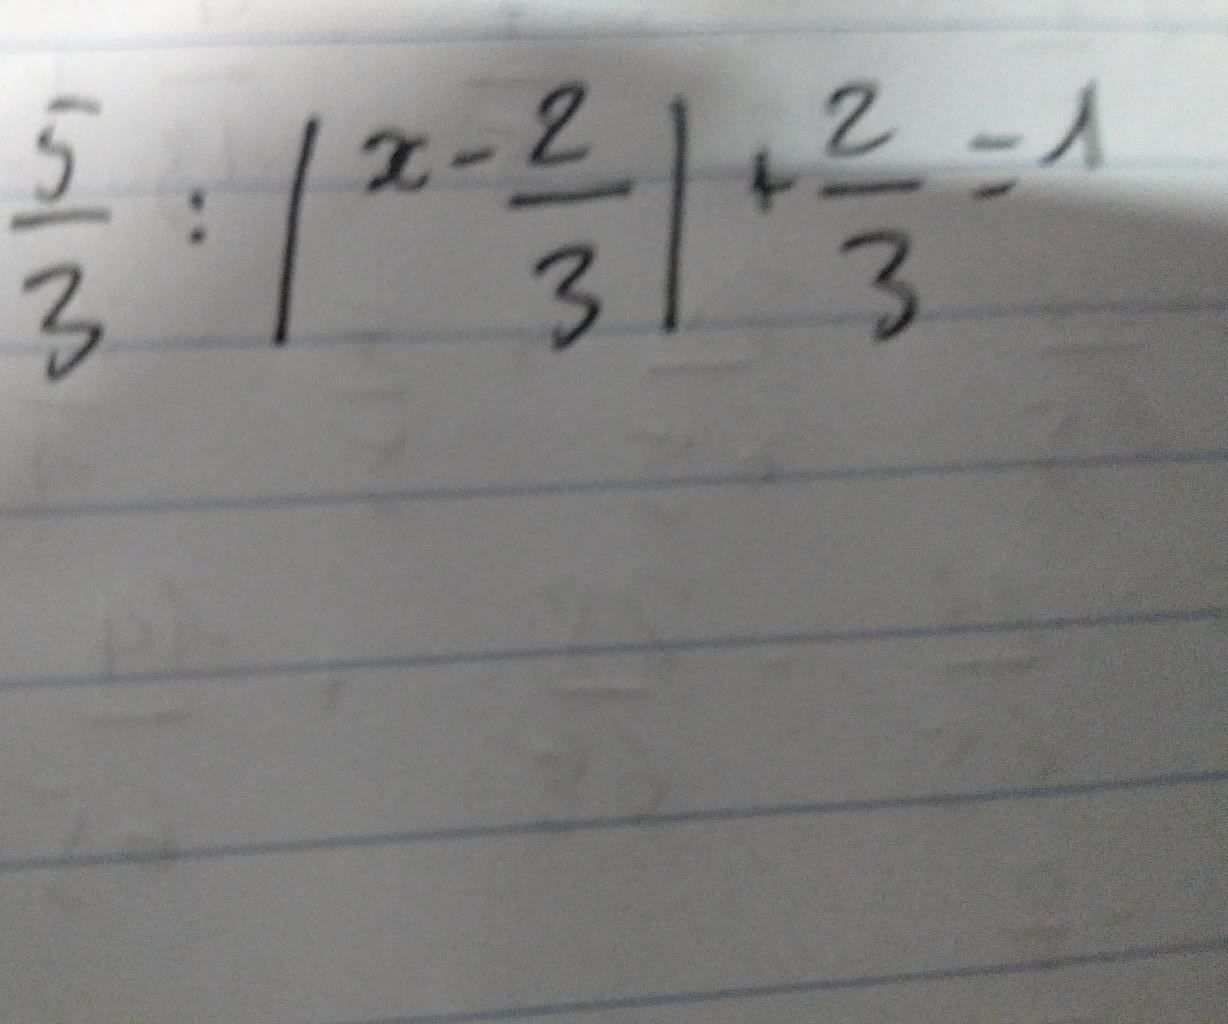 5/3 : |x - 2/3| + 2/3 = 1